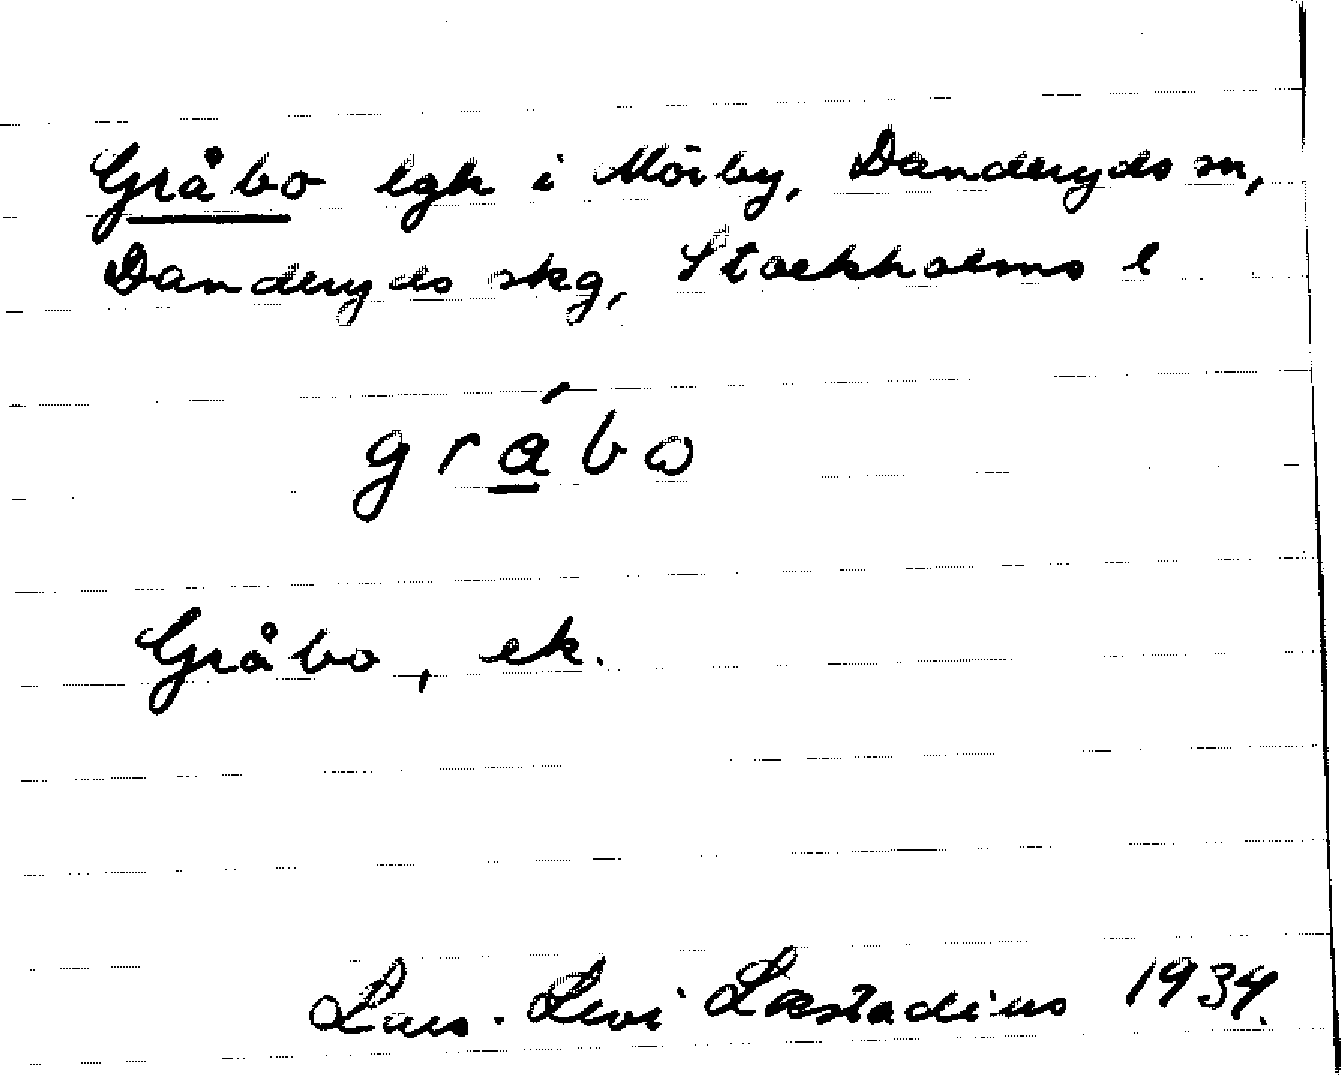 Gråbo lgh i Mörby, Danderyds sn,
Danderyds skg, Stockholms l
gråbo
Gråbo, ek.
Lars-Levi Læstadius 1934.